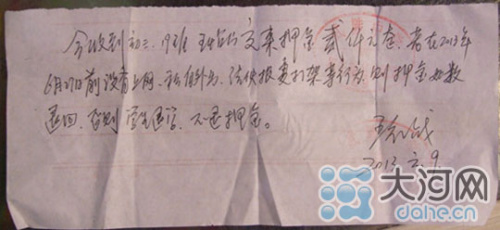 今收到初三、19班 交来押金贰仟元整、若在2013年
6月27日前没有上网、私自外出、结伙报复打架等行为,则押金如数
退回,否则 学生退学、不退押金。
2013.2.9
大河网
dahe.cn